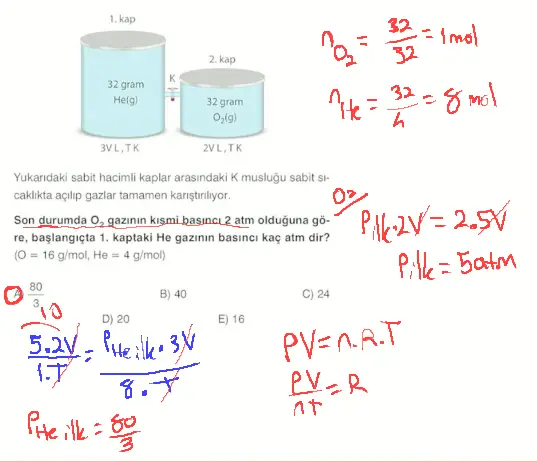 1. kap
2. kap
32 gram
He(g)
K
32 gram
O₂(g)
3V L , T K
2V L , T K
Yukarıdaki sabit hacimli kaplar arasındaki K musluğu sabit sı-
caklıkta açılıp gazlar tamamen karıştırılıyor.
Son durumda O₂ gazının kısmi basıncı 2 atm olduğuna gö-
re, başlangıçta 1. kaptaki He gazının basıncı kaç atm dir?
(O = 16 g/mol, He = 4 g/mol)
A) 80/3
B) 40
C) 24
D) 20
E) 16
n O₂ = 32/32 = 1 mol
n He = 32/4 = 8 mol
O₂
Pilk.2V = 2.5V
Pilk = 5atm
10
5.2V/1.T = PHe ilk . 3V/8 . T
PHe ilk = 80/3
PV = n.R.T
PV/nT = R